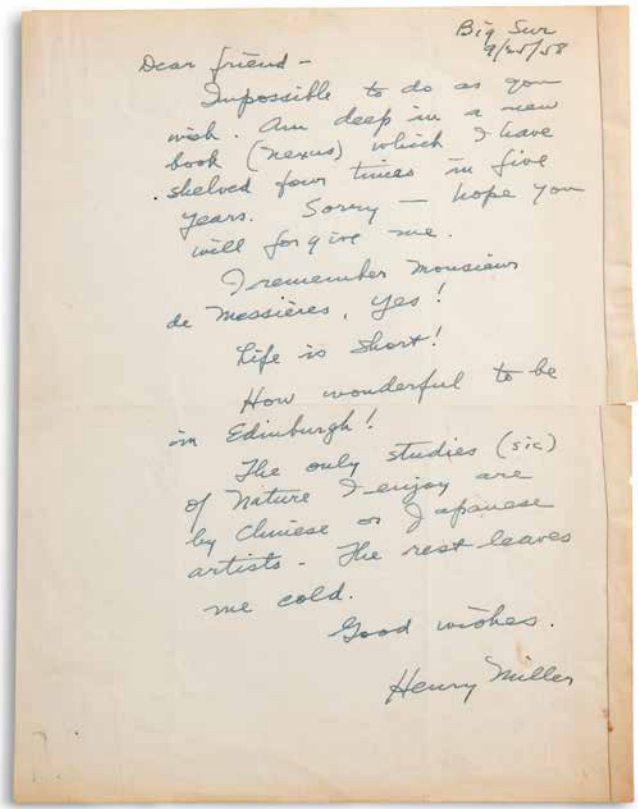 Big Sur
9/25/58
Dear friend -
Impossible to do as you
wish. Am deep in a new
book (Nexus) which I have
shelved four times in five
years. Sorry — hope you
will forgive me.
I remember Monsieur
de Messières, yes!
Life is short!
How wonderful to be
in Edinburgh!
The only studies (sic)
of Nature I enjoy are
by Chinese or Japanese
artists - The rest leaves
me cold.
Good wishes.
Henry Miller